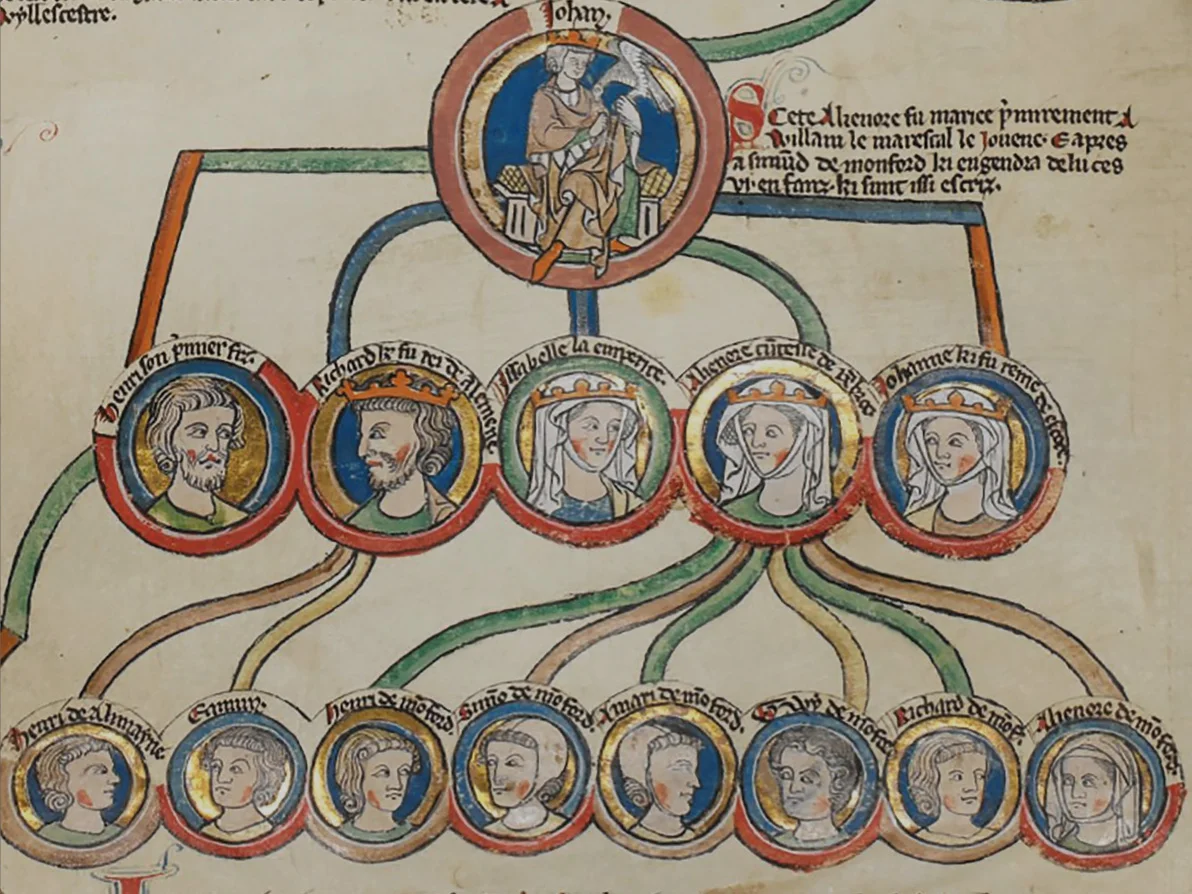 Wyllescestre.
Johan.
Cete Alienore fu mariee p̉mirement A
Willam le marescal le Jouene· E apres
a simūd de monford ki engendra de lui ces
vi· enfanz· ki sunt issi escriz.
Henri son p̉mier fiz.
Richard ke fu rei de alemene
Isabelle la emperice.
Alienore cūtesse de
Johanne ki fu reine de escoce.
Henri de Almayne
Edmund
Henri de mōford.
Simō de mōford.
Amari de mōford.
Gwy de mōford
Richard de mōf.
Alienore de mōford